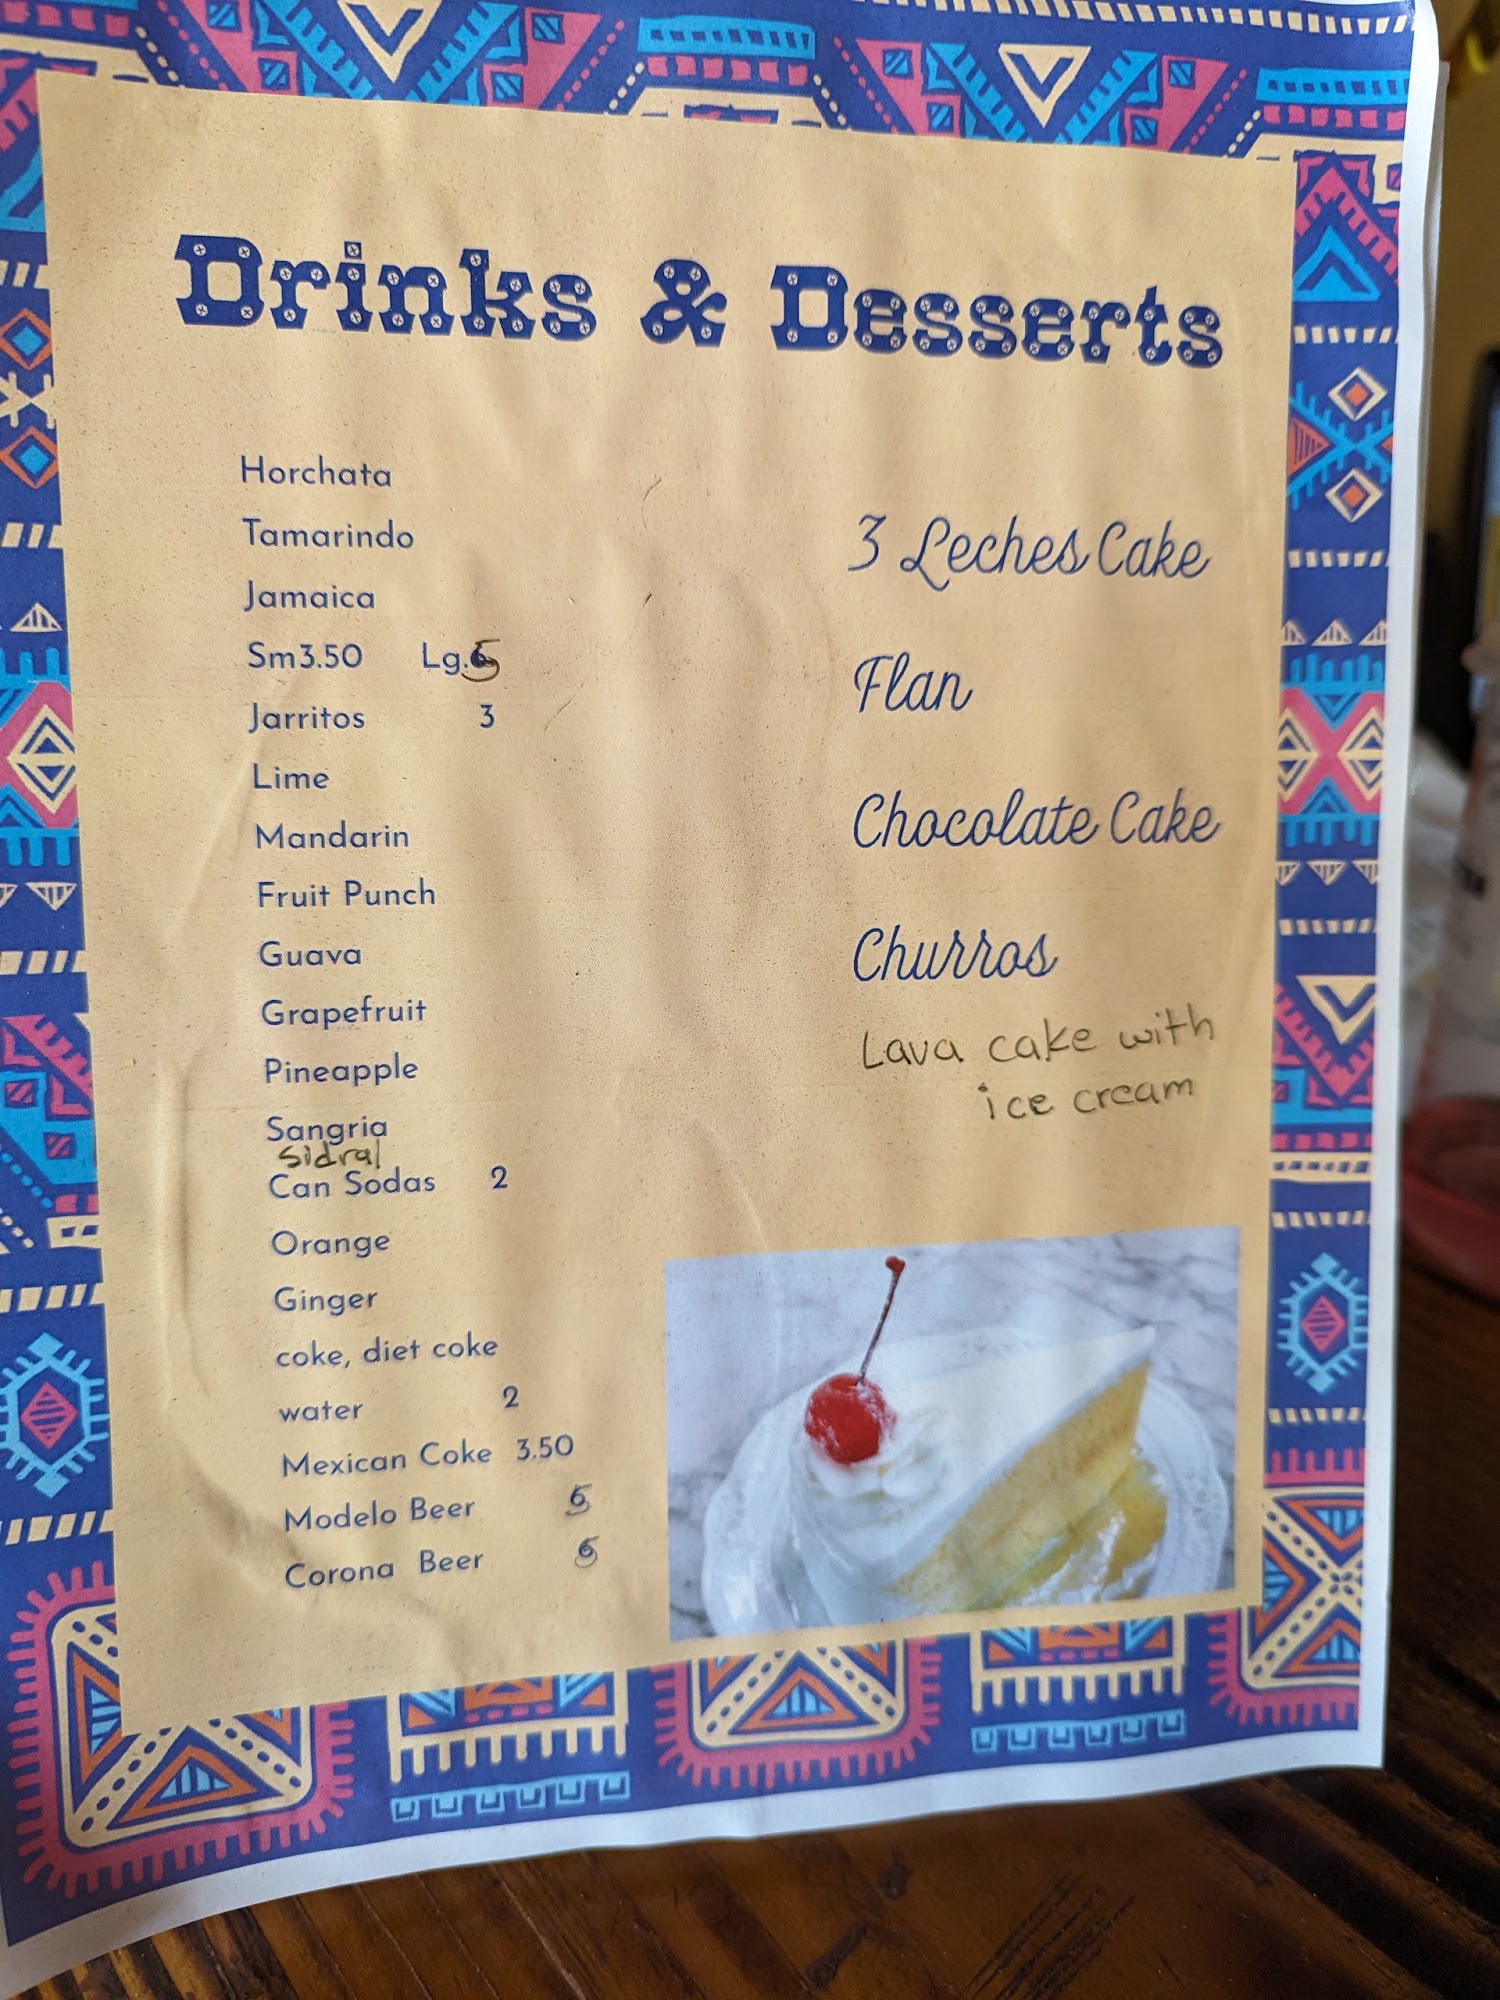 Drinks & Desserts
Horchata
Tamarindo
Jamaica
Sm3.50 Lg.5
Jarritos 3
Lime
Mandarin
Fruit Punch
Guava
Grapefruit
Pineapple
Sangria
sidral
Can Sodas 2
Orange
Ginger
coke, diet coke
water 2
Mexican Coke 3.50
Modelo Beer
Corona Beer
3 Leches Cake
Flan
Chocolate Cake
Churros
Lava cake with
ice cream